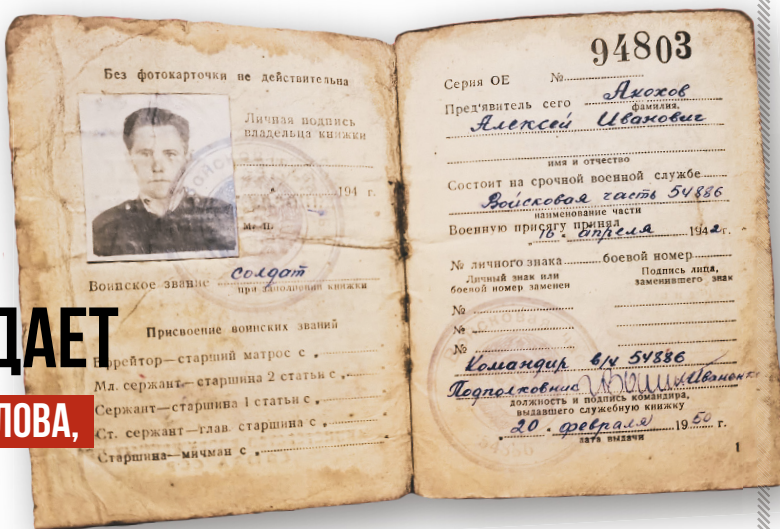 Без фотокарточки не действительна
Личная подпись
владельца книжки
194 г.
М. П.
Воинское звание солдат
при заполнении книжки
Присвоение воинских званий
Ефрейтор—старший матрос с
Мл. сержант—старшина 2 статьи с
Сержант—старшина 1 статьи с
Ст. сержант—глав. старшина с
Старшина—мичман с
ДАЕТ
ЛОВА,
94803
Серия ОЕ №
Пред'явитель сего Анохов
фамилия,
Алексей Иванович
имя и отчество
Состоит на срочной военной службе
Войсковая часть 54886
наименование части
Военную присягу принял
"16" апреля 1942 г.
№ личного знака боевой номер
Личный знак или
боевой номер заменен
Подпись лица,
заменившего знак
№
№
№
Командир в/ч 54886
Подполковник Иваненко
должность и подпись командира,
выдавшего служебную книжку
20 февраля 1950 г.
дата выдачи
1